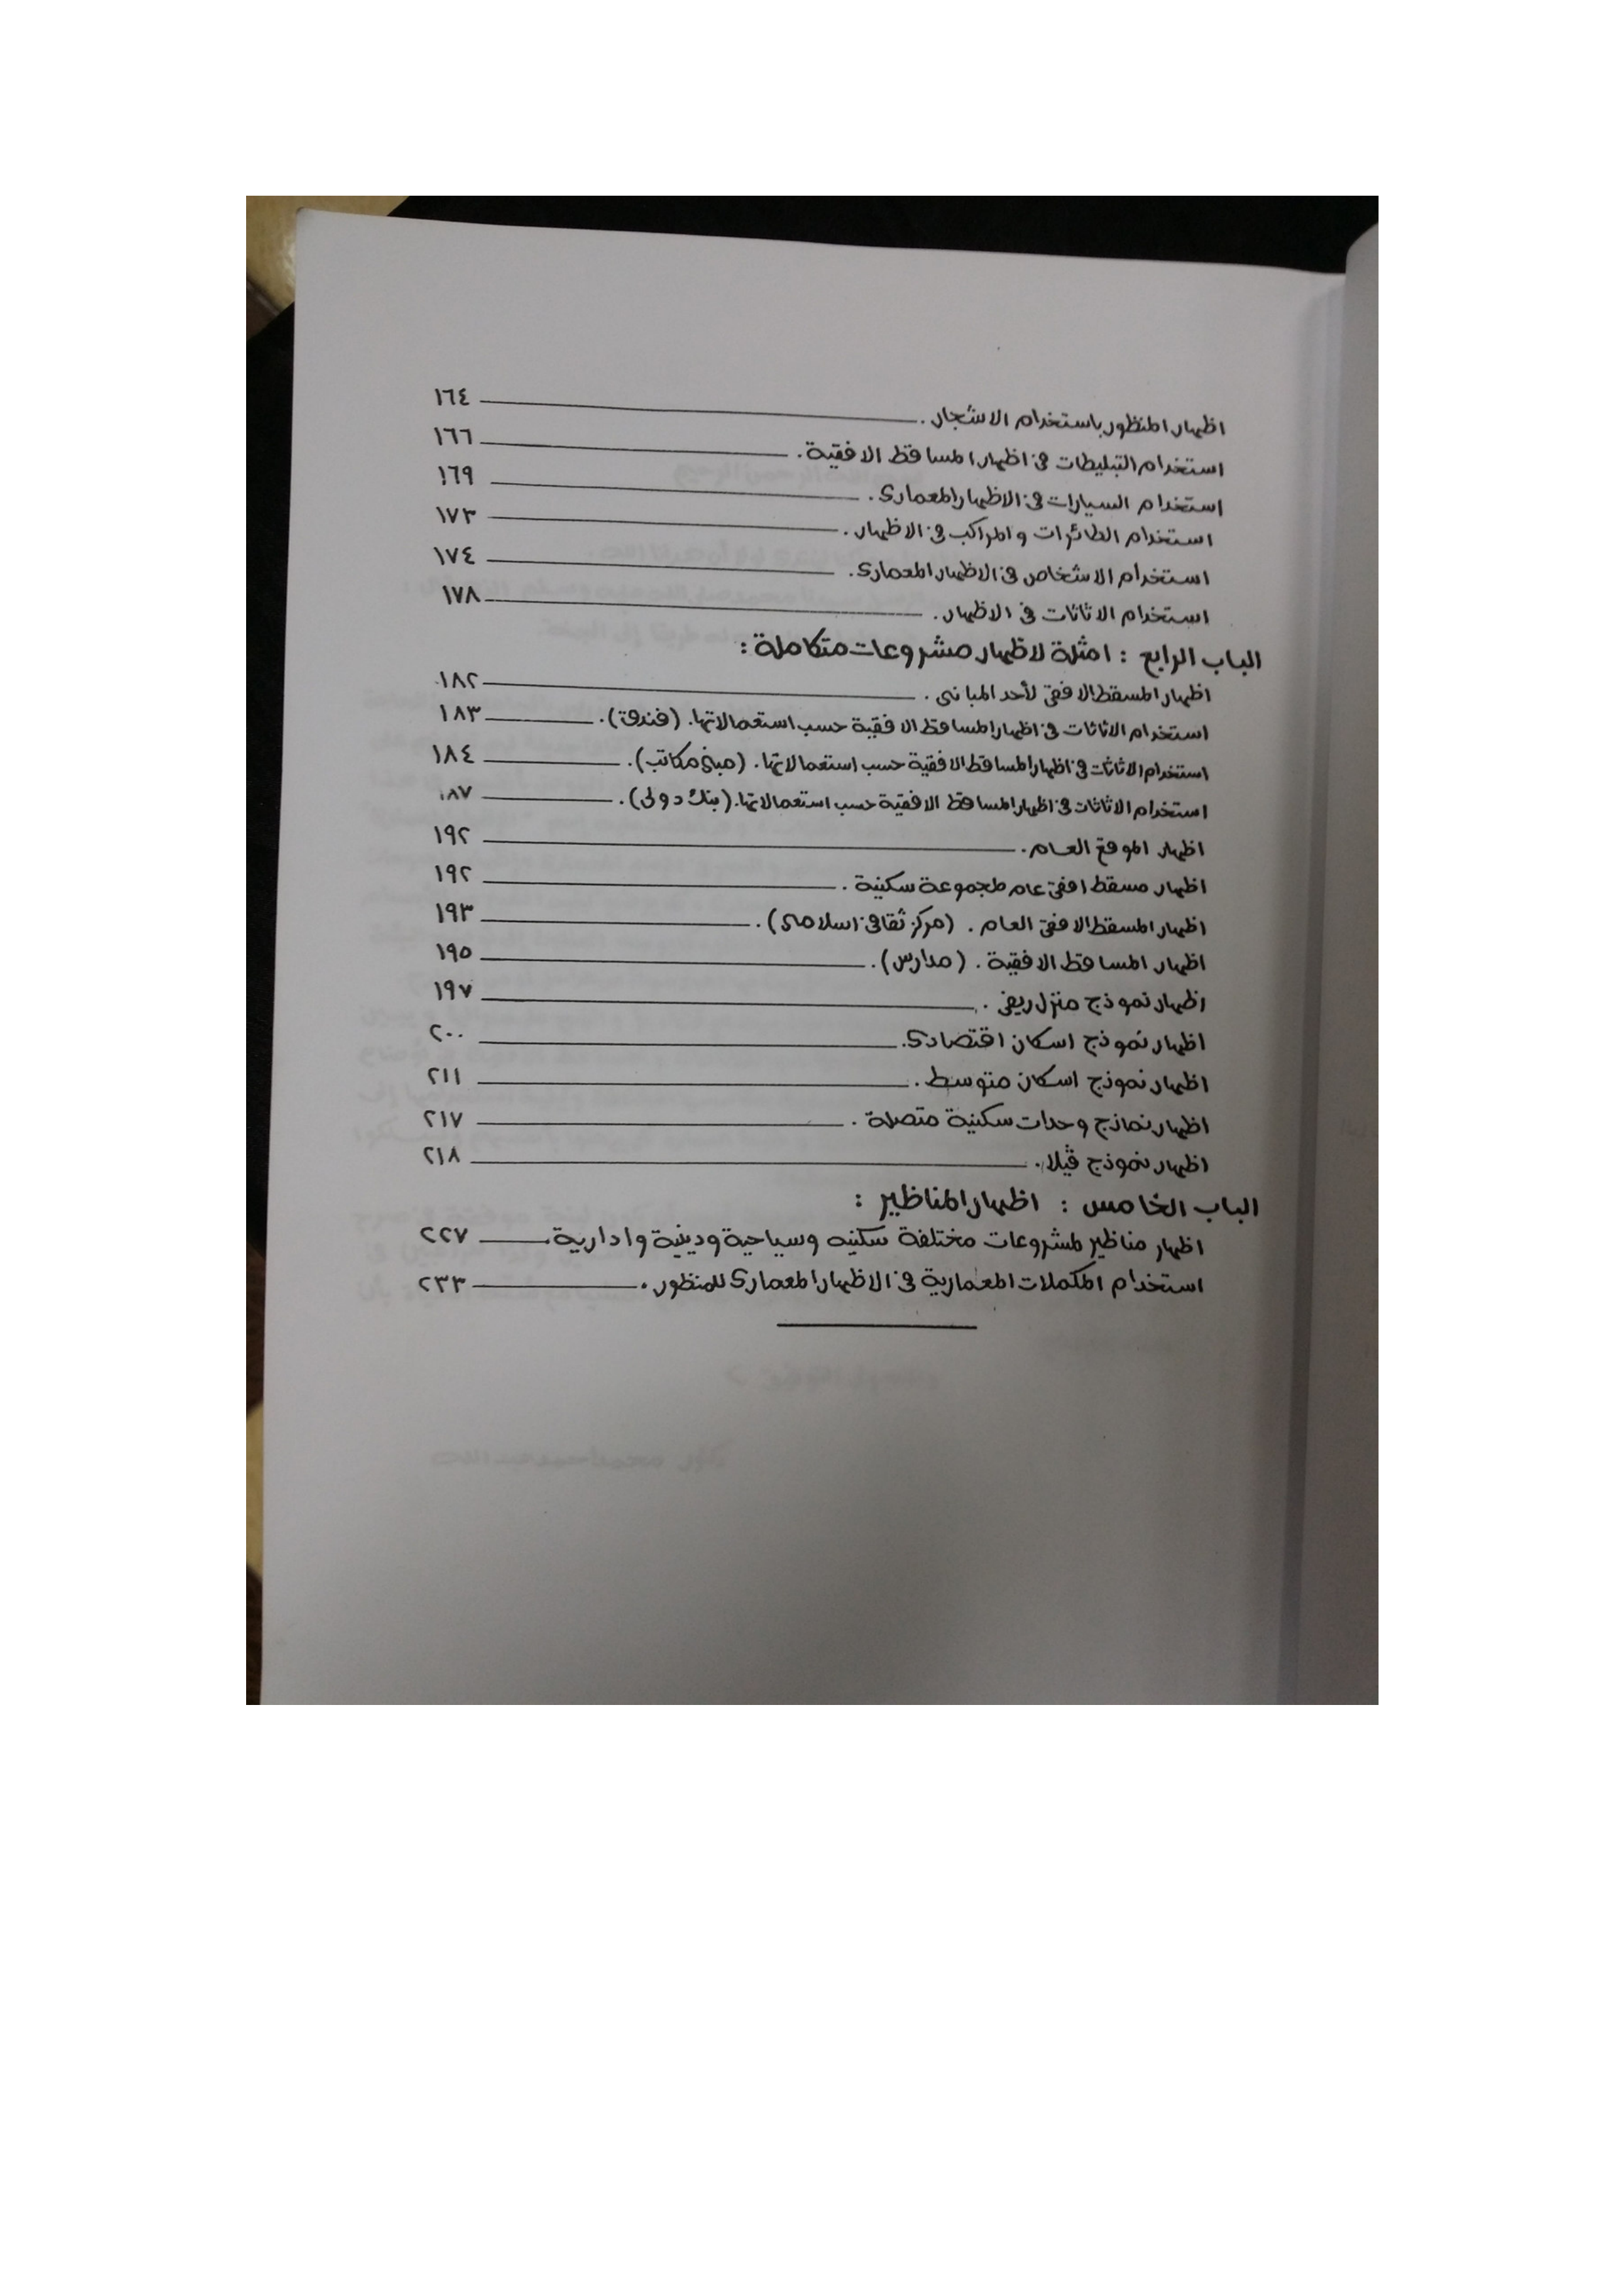 اظهار المنظور باستخدام الاشجار. ١٦٤
استخدام التبليطات فى اظهار المساقط الافقية. ١٦٦
استخدام السيارات فى الاظهار المعمارى. ١٦٩
استخدام الطائرات والمراكب فى الاظهار. ١٧٣
استخدام الاشخاص فى الاظهار المعمارى. ١٧٤
استخدام الاثاثات فى الاظهار. ١٧٨
الباب الرابع : امثلة لاظهار مشروعات متكاملة :
اظهار المسقط الافقى لأحد المبانى. ١٨٢
استخدام الاثاثات فى اظهار المساقط الافقية حسب استعمالاتها. (فندق). ١٨٣
استخدام الاثاثات فى اظهار المساقط الافقية حسب استعمالاتها. (مبنى مكاتب). ١٨٤
استخدام الاثاثات فى اظهار المساقط الافقية حسب استعمالاتها. (بنك دولى). ١٨٧
اظهار الموقع العام. ١٩٢
اظهار مسقط افقى عام لمجموعة سكنية. ١٩٢
اظهار المسقط الافقى العام. (مركز ثقافى اسلامى). ١٩٣
اظهار المساقط الافقية. (مدارس). ١٩٥
اظهار نموذج منزل ريفى. ١٩٧
اظهار نموذج اسكان اقتصادى. ٢٠٠
اظهار نموذج اسكان متوسط. ٢١١
اظهار نماذج وحدات سكنية متصلة. ٢١٧
اظهار نموذج ڤيلا. ٢١٨
الباب الخامس : اظهار المناظير :
اظهار مناظير لمشروعات مختلفة سكنيه وسياحية ودينية وادارية. ٢٢٧
استخدام المكملات المعمارية فى الاظهار المعمارى للمنظور. ٢٣٣